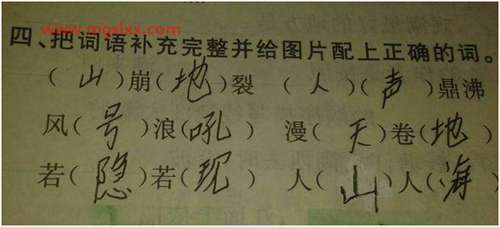 www.mqslxs.com
四、把词语补充完整并给图片配上正确的词。
（山）崩（地）裂 （人）（声）鼎沸
风（号）浪（吼） 漫（天）卷（地）
若（隐）若（现） 人（山）人（海）